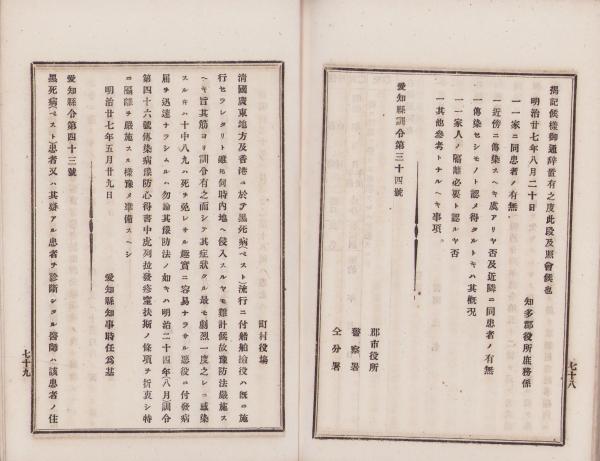 揭記候樣御通辭置有之度此段及照會候也
明治廿七年八月二十日
知多郡役所庶務係
一一家ニ同患者ノ有無
一近傍ニ傳染スヘキ虞アリヤ否及近隣ニ同患者ノ有無
一傳染セシモノト認メ得タルトキハ其概況
一一家人ノ隔離必要ト認ルヤ否
一其他參考トナルヘキ事項
愛知縣訓令第三十四號
郡市役所
警察署
仝分署
七十八
町村役塲
淸國廣東地方及香港ニ於テ黑死病(ペスト)流行ニ付船舶檢役ハ既ニ施
行セラレタリト雖𪜈何時內地ヘ侵入スルヤモ難計候故豫防法嚴施ス
ヘキ旨其筋ヨリ訓令有之而シテ其症狀タル最モ劇烈一度之レニ感染
スルキハ十中八九ハ死ヲ免レサル趣實ニ容易ナラサル惡役ニ付發病
屆ヲ迅速ナラシムルハ勿論其豫防法ノ如キハ明治二十四年(八月)訓令
第四十六號傳染病豫防心得書中虎列拉發疹窒扶斯ノ條項ヲ折衷シ特
ニ隔離ヲ嚴施スル樣豫メ準備スヘシ
明治廿七年五月廿九日
愛知縣知事時任爲基
愛知縣令第四十三號
黑死病(ペスト)患者又ハ其疑アル患者ヲ診斷シタル醫師ハ該患者ノ住
七十九